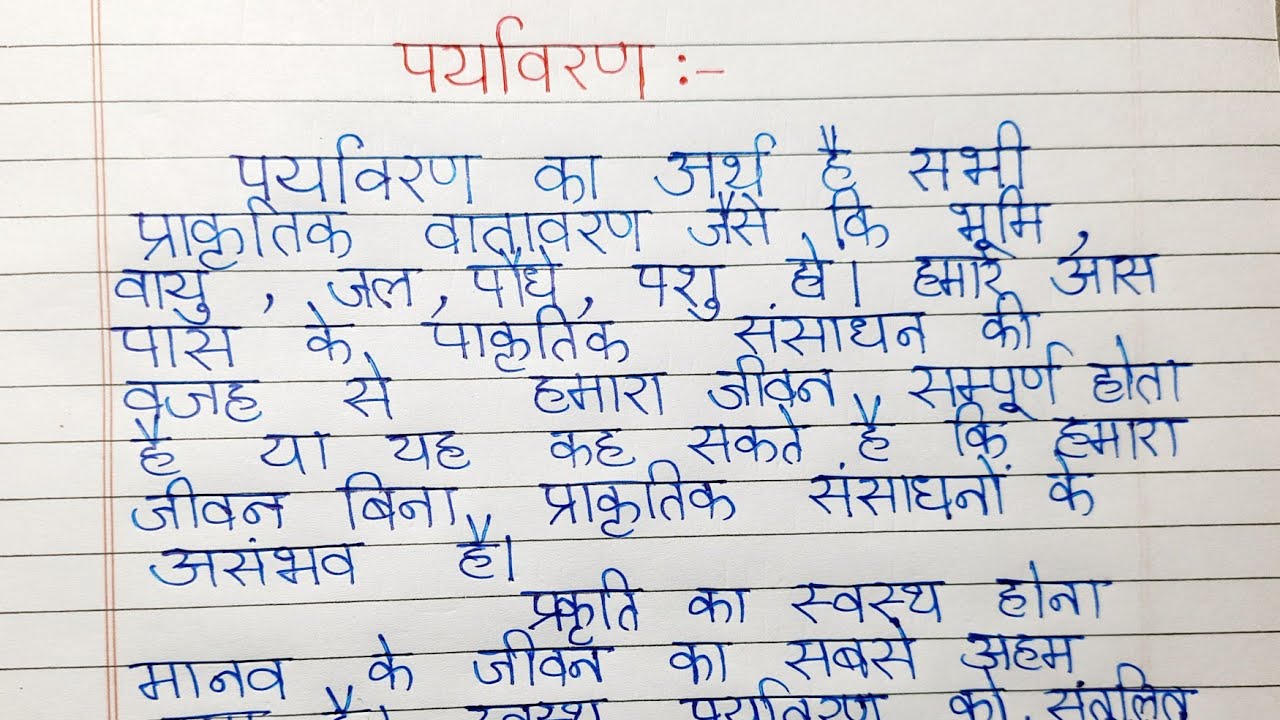 पर्यावरण :-
पर्यावरण का अर्थ है सभी
प्राकृतिक वातावरण जैसे कि भूमि,
वायु, जल, पौधे, पशु है। हमारे आस
पास के पाकृतिक संसाधन की
वजह से हमारा जीवन सम्पूर्ण होता
है या यह कह सकते है कि हमारा
जीवन बिना प्राकृतिक संसाधनों के
असंभव है।
प्रकृति का स्वस्थ होना
मानव के जीवन का सबसे अहम
है। स्वस्थ पर्यावरण को संतुलित